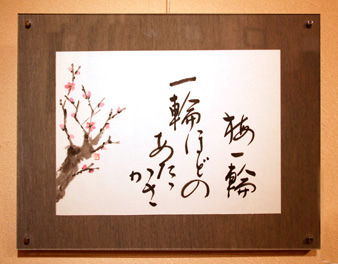 梅一輪
一輪ほどの
あたゝ
かさ